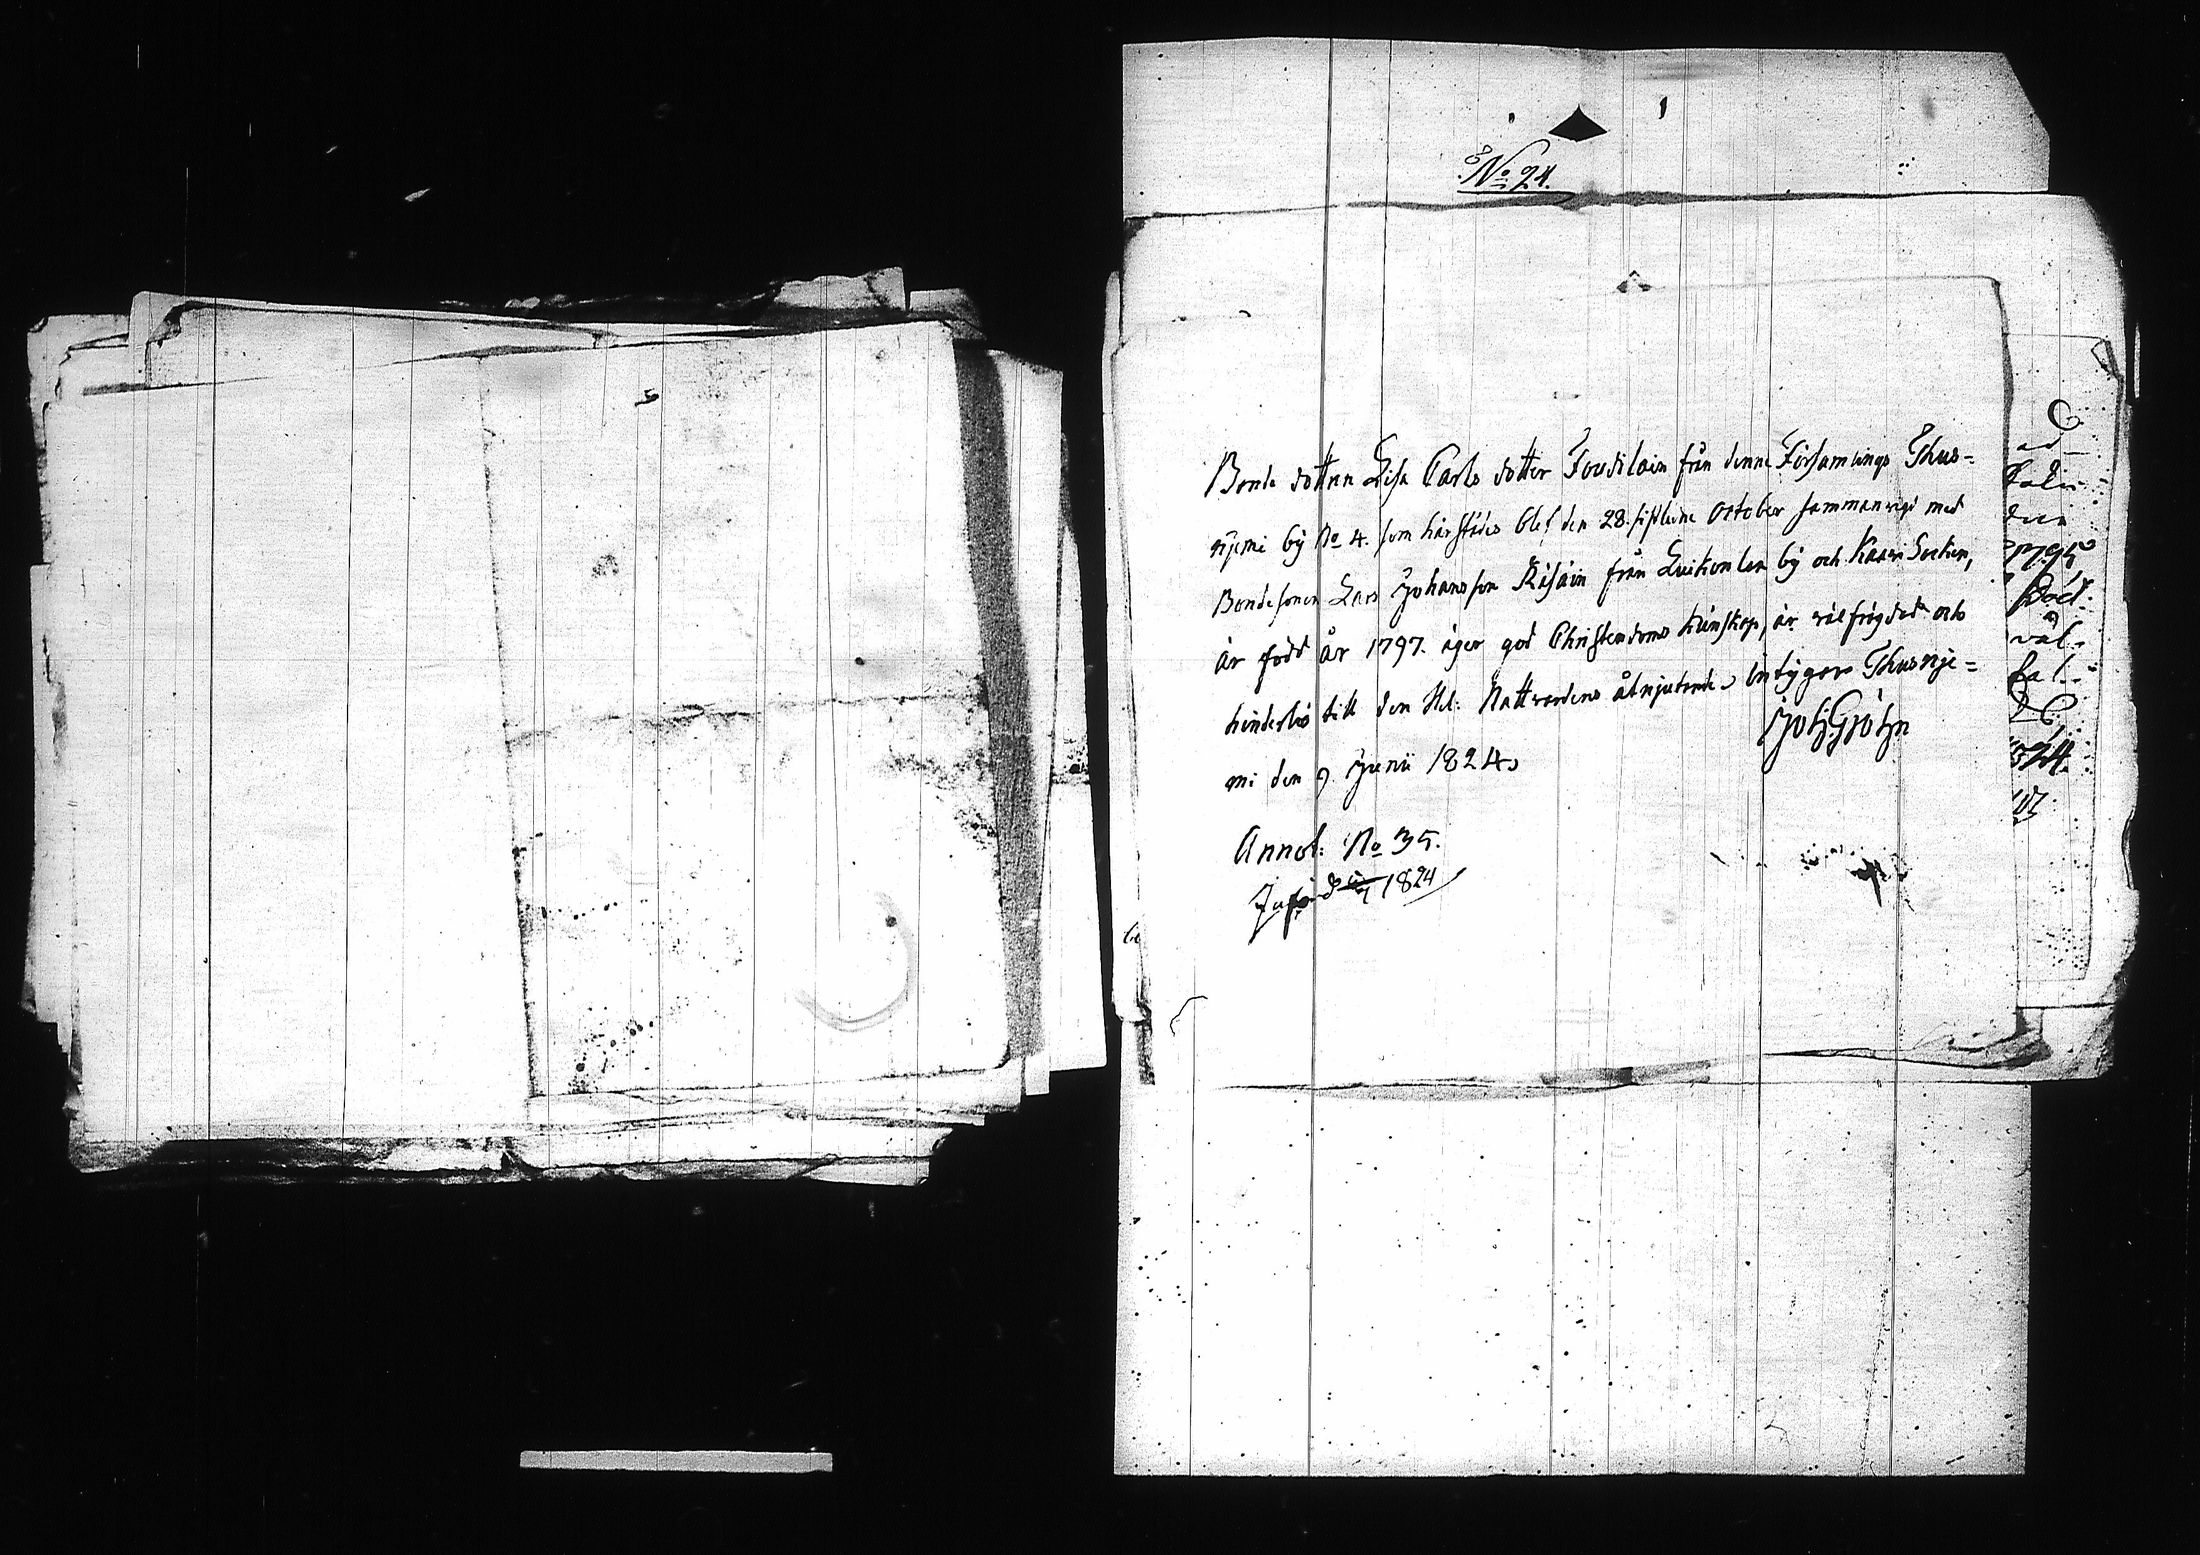 No 24.
Bonde dottren Lisa Carls dotter Toudilain från denne Församlings Thus-
njemi bÿ No 4. som härstädes blef den 28. sistledne October sammanvigd med
Bondesonen Lars Johansson Räsäin från Lutikonlax bÿ och Kaavi Socken,
är född år 1797. äger god Christendoms kunskap, är välfrägdad och
hinderlös till den Hel: Nattvardens åtnjutande, betÿgar Thusnje-
mi den 9 Junii 1824.
Joh: Gröhn
Annot: No 35.
1824
ad
1795
väl
24.